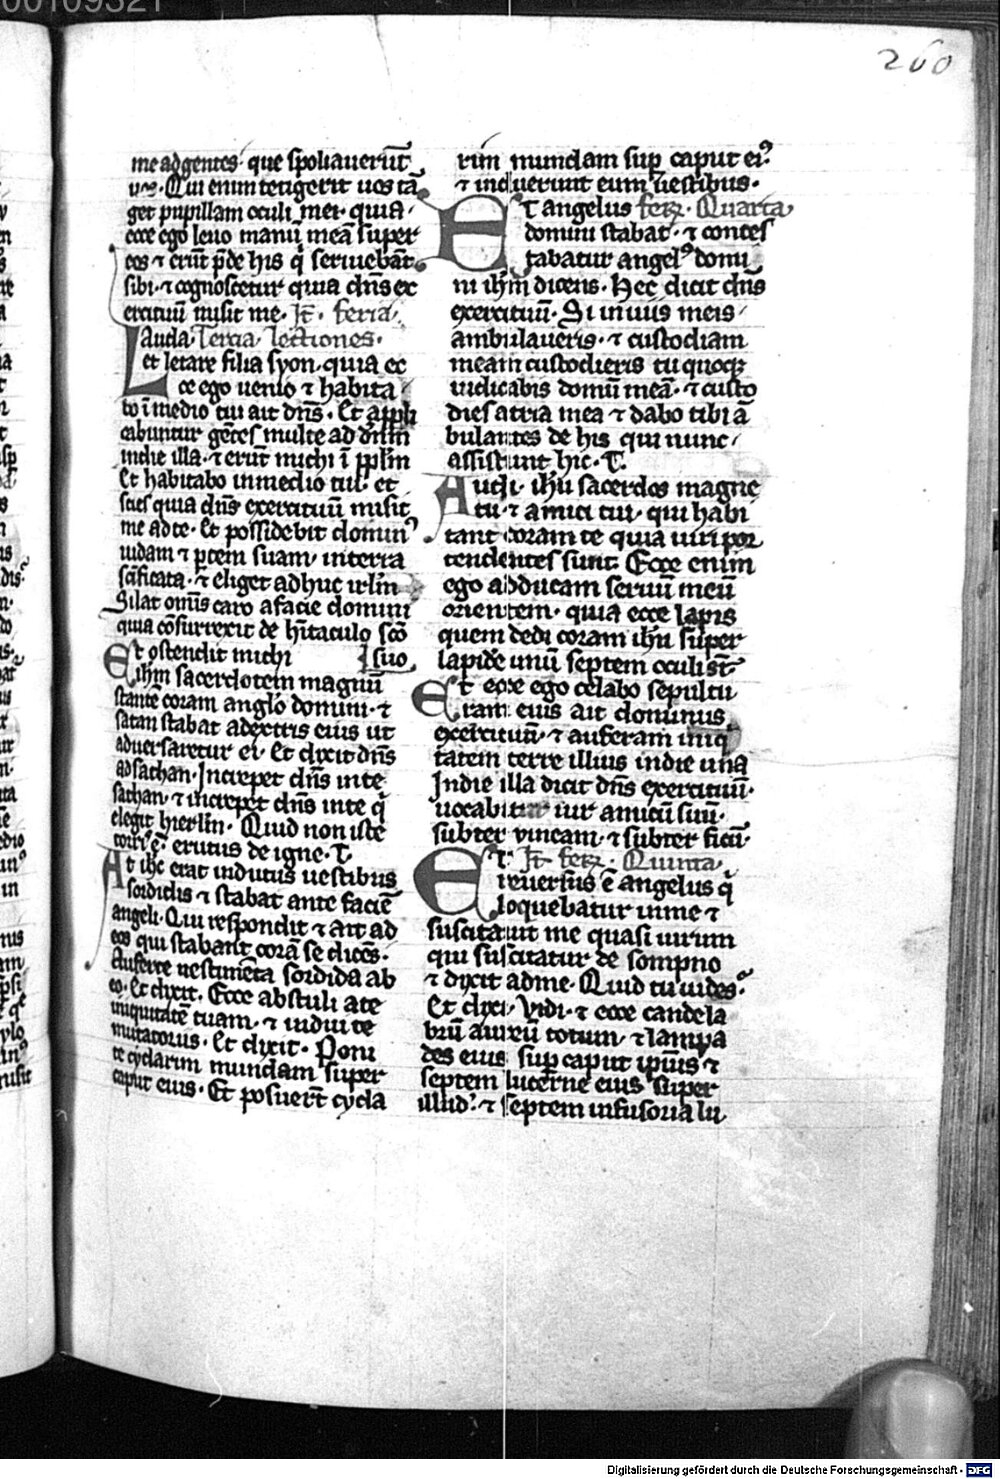 260
me ad gentes· que spoliauerūt
vos· Qui enim tetigerit uos tā
get pupillam oculi mei· quia
ecce ego leuo manū meā super
eos ⁊ erūt p̄de his q̇ seruiebāt
sibi· ⁊ cognoscetur quia dn̄s ex
ercituū misit me· It̄· feria
Lauda· Tercia· lectiones·
et letare filia syon· quia ec
ce ego uenio ⁊ habita
bo ī medio tui ait dn̄s· Et appli
cabuntur gētes multe ad dn̄m
in die illa· ⁊ erūt michi ī pplm̄
Et habitabo in medio tui· et
scies quia dn̄s exercituū misit
me ad te· Et possidebit dominꝰ
iudam ⁊ ptem suam· in terra
sc̄ificata· ⁊ eliget adhuc irl̄m
Silat omīs caro a facie domini
quia cōsurrexit de hītaculo sc̄o
Et ostendit michi suo
ihm̄ sacerdotem magnū
stantē coram anglo domini· ⁊
satan stabat a dextris eius ut
aduersaretur ei· Et dixit dn̄s
ad sathan· Increpet dn̄s in te
sathan· ⁊ increpet dn̄s in te q̇
elegit hierlm̄· Quid non iste
torrꝭ ē erutus de igne· T·
At ihc erat indutus uestibus
sordidis ⁊ stabat ante faciē
angeli· Qui respondit ⁊ ait ad
eos qui stabant corā se dicēs·
Auferte uestimēta sordida ab
eo· Et dixit· Ecce abstuli a te
iniquitatē tuam· ⁊ indui te
mutatoriis· Et dixit· Poni
te cydarim mundam super
caput eius· Et posuert̄ cyda
rim mundam sup caput eiꝰ
⁊ induerunt eum uestibus·
Et angelus ferꝝ· Quarta
domini stabat· ⁊ contes
tabatur angelꝰ domi
ni ihm̄ dicens· Hec dicit dn̄s
exercituū· Si in uiis meis
ambulaueris· ⁊ custodiam
meam custodieris tu quoqꝫ
iudicabis domū meā· ⁊ custo
dies atria mea ⁊ dabo tibi ā
bulantes de his qui nunc
assistunt hic· T·
Audi· ihū sacerdos magne
tu· ⁊ amici tui· qui habi
tant coram te quia uiri por
tendentes sunt· Ecce enim
ego adducam seruū meū
orientem· quia ecce lapis
quem dedi coram ihū super
lapide unū septem oculi st̄
Et ecce ego celabo sepultu
ram eius ait dominus
exercituū· ⁊ auferam iniq̇
tatem terre illius in die una
In die illa dicit dn̄s exercituū·
uocabitur uir amicū suū·
subter vineam· ⁊ subter ficū·
Et It̄ ferꝝ· Quinta
reuersus ē angelus q̇
loquebatur in me ⁊
suscitauit me quasi uirum
qui suscitatur de sompno
⁊ dixit ad me· Quid tu uides·
Et dixi· Vidi· ⁊ ecce candela
brū aureū totum· ⁊ lampa
des eius sup caput ipīus ⁊
septem lucerne eius super
illud· ⁊ septem infusoria lu
Digitalisierung gefördert durch die Deutsche Forschungsgemeinschaft - DFG